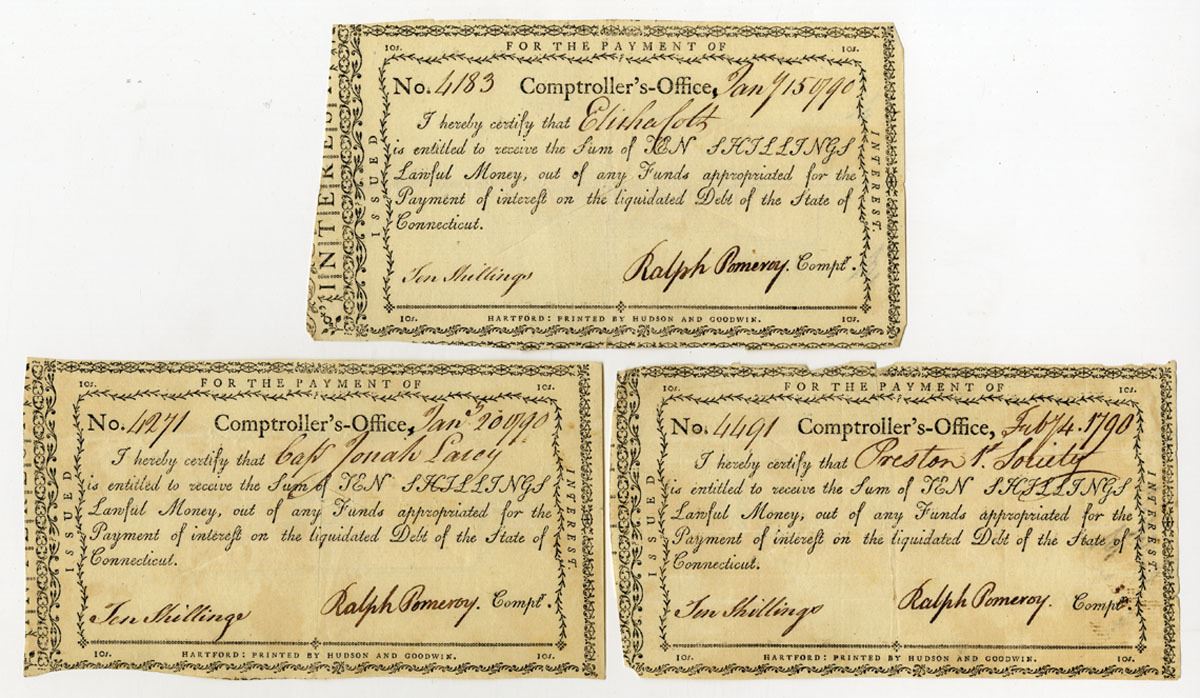 10s. FOR THE PAYMENT OF 10s.
No. 4183 Comptroller's-Office, Jany 15 1790
I hereby certify that Elisha Colt
is entitled to receive the Sum of TEN SHILLINGS
Lawful Money, out of any Funds appropriated for the
Payment of intereſt on the liquidated Debt of the State of
Connecticut.
Ten Shillings Ralph Pomeroy. Comptr.
10s. HARTFORD: PRINTED BY HUDSON AND GOODWIN. 10s.
ISSUED
INTEREST.
INTERE
10s. FOR THE PAYMENT OF 10s.
No. 4271 Comptroller's-Office, Jany 20 1790
I hereby certify that Capt Jonah
is entitled to receive the Sum of TEN SHILLINGS
Lawful Money, out of any Funds appropriated for the
Payment of intereſt on the liquidated Debt of the State of
Connecticut.
Ten Shillings Ralph Pomeroy. Comptr.
10s. HARTFORD: PRINTED BY HUDSON AND GOODWIN. 10s.
ISSUED
INTEREST.
10s. FOR THE PAYMENT OF 10s.
No. 4491 Comptroller's-Office, Feby 4. 1790
I hereby certify that Preston 1st. Society
is entitled to receive the Sum of TEN SHILLINGS
Lawful Money, out of any Funds appropriated for the
Payment of intereſt on the liquidated Debt of the State of
Connecticut.
Ten Shillings Ralph Pomeroy. Comptr.
10s. HARTFORD: PRINTED BY HUDSON AND GOODWIN. 10s.
ISSUED
INTEREST.